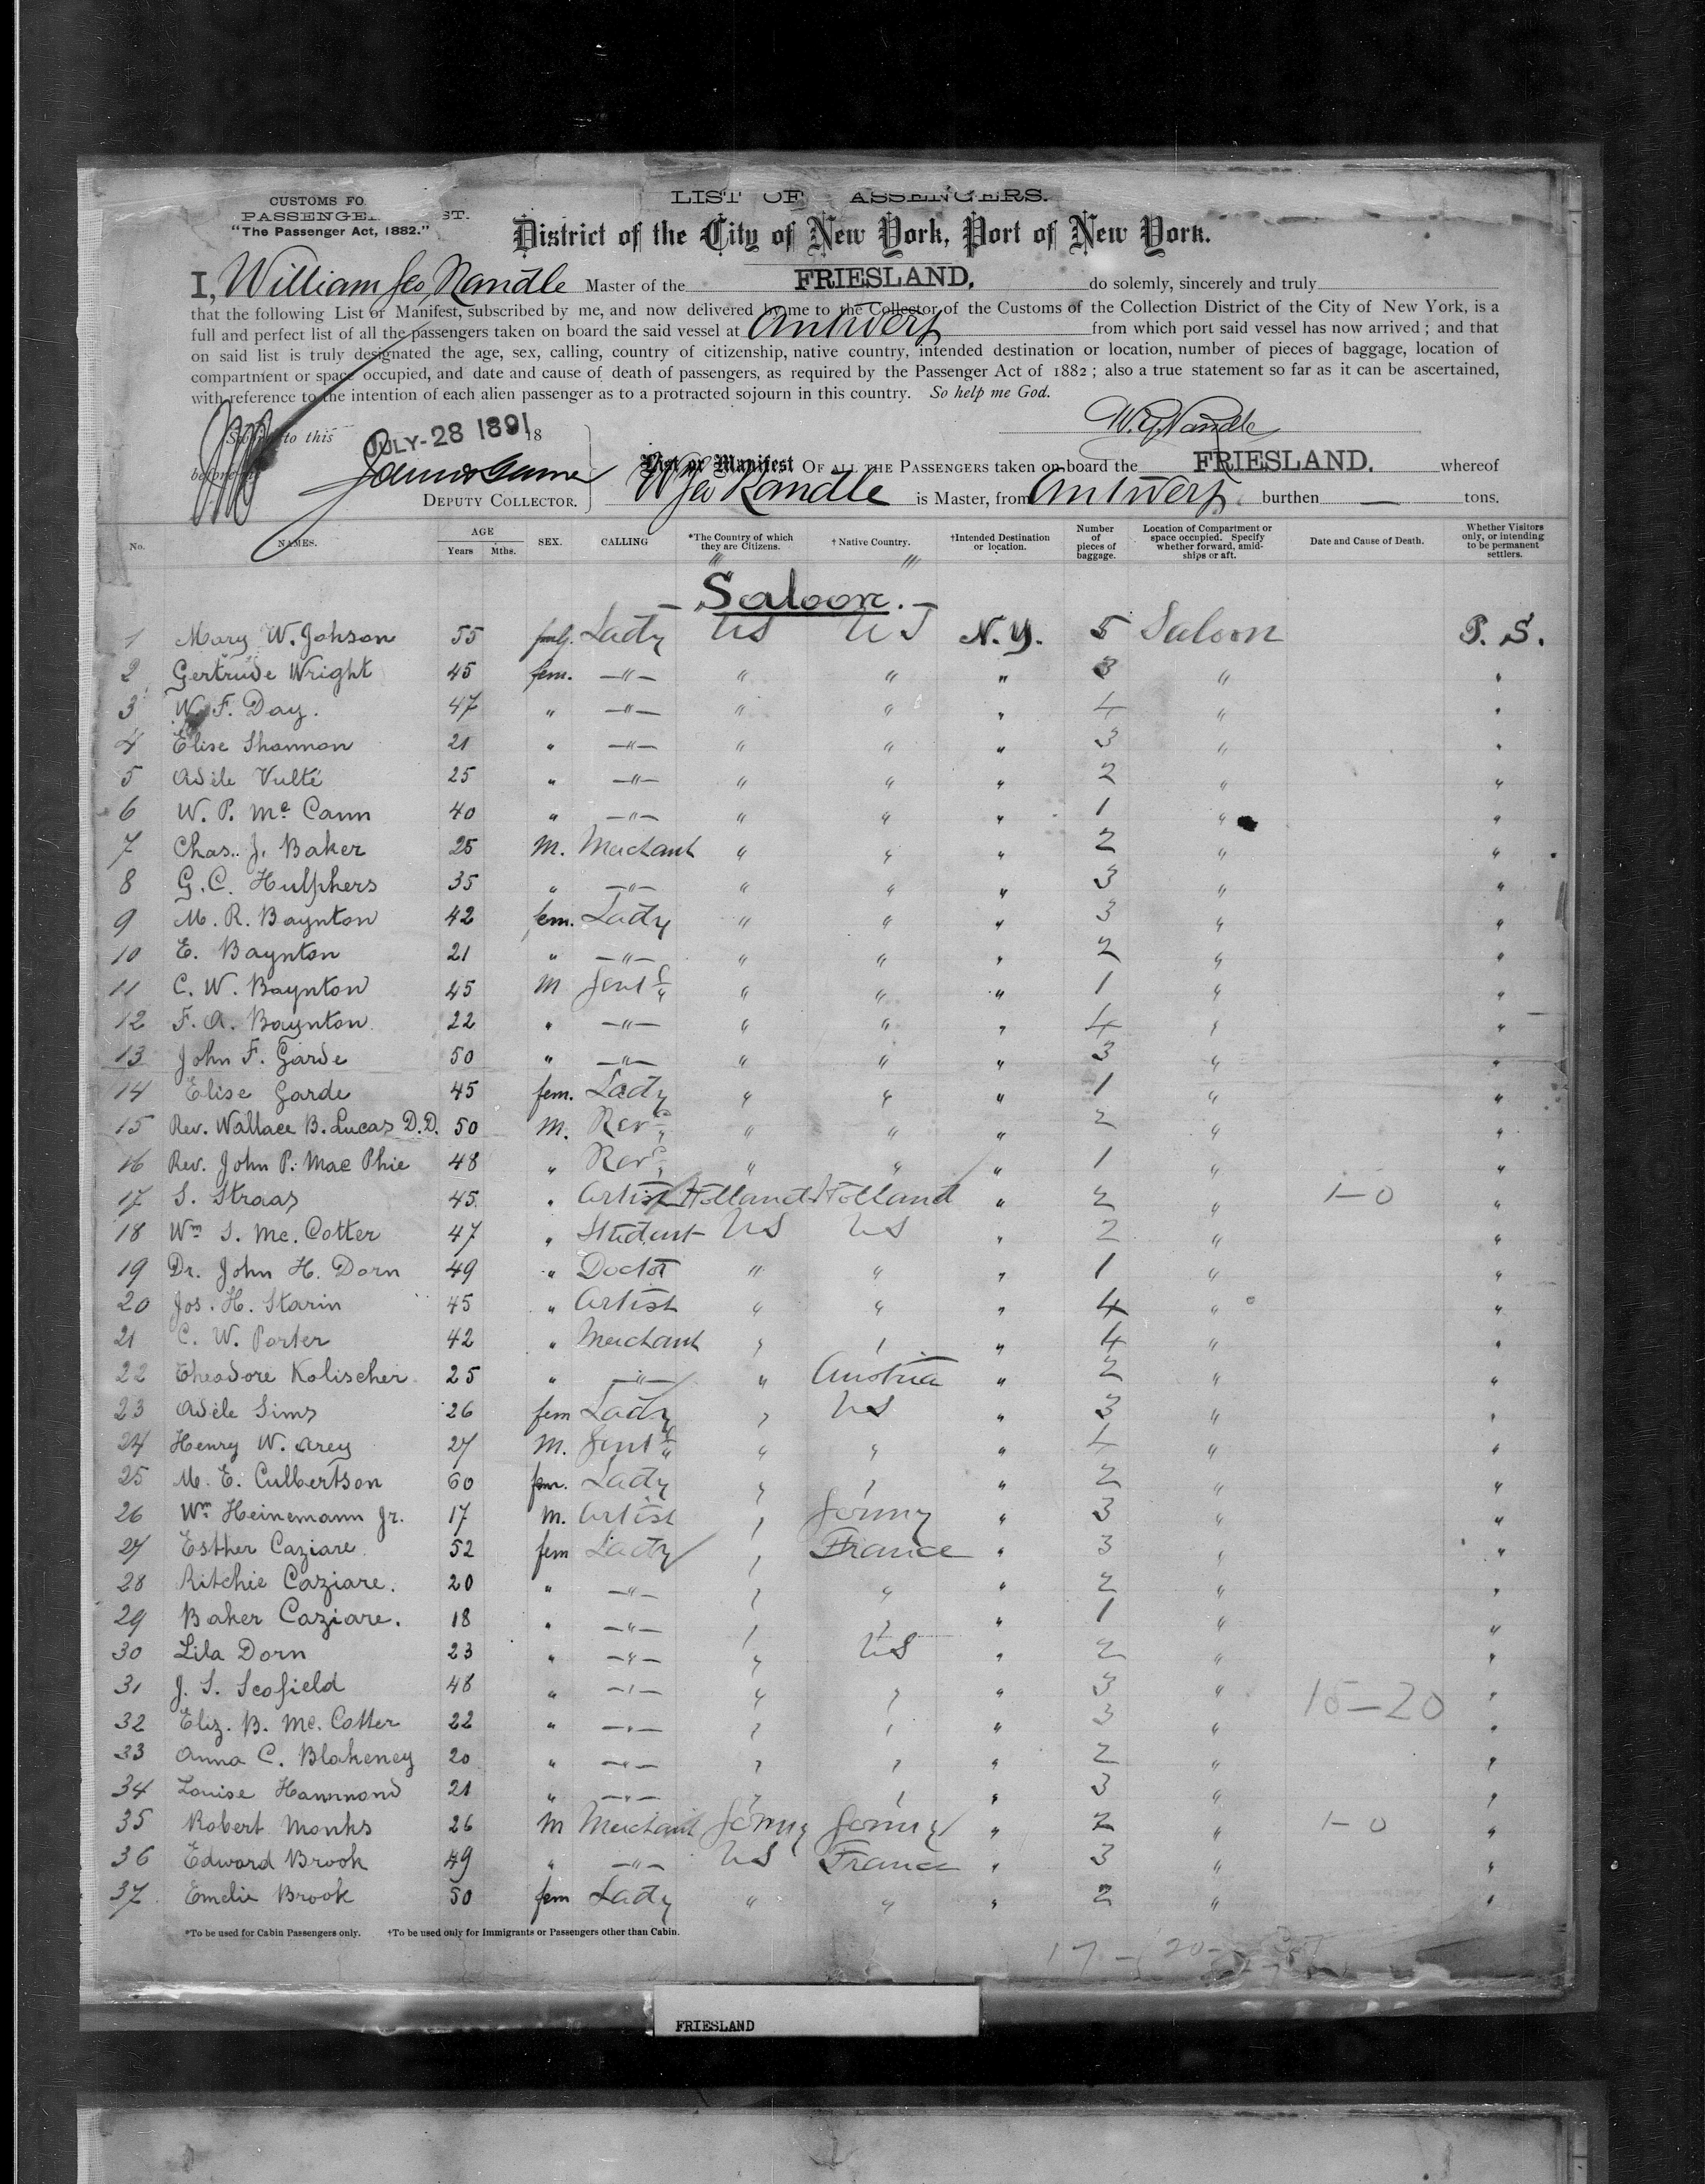 CUSTOMS FO
LIST OF ASSENGERS.
PASSENGE ST.
"The Passenger Act, 1882."
District of the City of New York, Port of New York.
I, William Geo Randle Master of the FRIESLAND, do solemly, sincerely and truly
that the following List or Manifest, subscribed by me, and now delivered by me to the Collector of the Customs of the Collection District of the City of New York, is a
full and perfect list of all the passengers taken on board the said vessel at Antwerp from which port said vessel has now arrived ; and that
on said list is truly designated the age, sex, calling, country of citizenship, native country, intended destination or location, number of pieces of baggage, location of
compartment or space occupied, and date and cause of death of passengers, as required by the Passenger Act of 1882 ; also a true statement so far as it can be ascertained,
with reference to the intention of each alien passenger as to a protracted sojourn in this country. So help me God.
W.G. Randle
to this JULY-28 1891 18
before
List or Manifest OF ALL THE PASSENGERS taken on board the FRIESLAND. whereof
DEPUTY COLLECTOR. W Geo Randle is Master, from Antwerp burthen — tons.
No. NAMES. AGE Years Mths. SEX. CALLING *The Country of which they are Citizens. † Native Country. †Intended Destination or location. Number of pieces of baggage. Location of Compartment or space occupied. Specify whether forward, amidships or aft. Date and Cause of Death. Whether Visitors only, or intending to be permanent settlers.
– Saloon. –
1 Mary W. Johson 55 Lady US US N.Y. 5 Saloon P. S.
2 Gertrude Wright 45 fem. —"— " " " 3 " "
3 W. F. Day. 47 " —"— " " " 4 " "
4 Elise Shannon 21 " —"— " " " 3 " "
5 Adèle Vulté 25 " —"— " " " 2 " "
6 W. P. Mc Cann 40 " —"— " " " 1 " "
7 Chas. J. Baker 25 M. Merchant " " " 2 " "
8 G. C. Hulphers 35 " —"— " " " 3 " "
9 M. R. Baynton 42 fem. Lady " " " 3 " "
10 E. Baynton 21 " —"— " " " 2 " "
11 C. W. Baynton 45 M Gent " " " 1 " "
12 F. A. Baynton 22 " —"— " " " 4 " "
13 John F. Garde 50 " —"— " " " 3 " "
14 Elise Garde 45 fem. Lady " " " 1 " "
15 Rev. Wallace B. Lucas D.D. 50 M. Rev " " " 2 " "
16 Rev. John P. Mac Phie 48 " Rev " " " 1 " "
17 S. Straas 45 " Artist Holland Holland " 2 " 1–0 "
18 Wm S. Mc. Cotter 47 " Student US US " 2 " "
19 Dr. John H. Dorn 49 " Doctor " " " 1 " "
20 Jos. H. Starin 45 " Artist " " " 4 " "
21 C. W. Porter 42 " Merchant " " " 4 " "
22 Theodore Kolischer 25 " —"— " Austria " 2 " "
23 Adèle Sims 26 fem Lady " US " 3 " "
24 Henry W. Arey 27 M. Gent " " " 4 " "
25 M. E. Culbertson 60 fem. Lady " " " 2 " "
26 Wm Heinemann Jr. 17 M. Artist " Germy " 3 " "
27 Esther Caziare 52 fem Lady " France " 3 " "
28 Ritchie Caziare. 20 " —"— " " " 2 " "
29 Baker Caziare. 18 " —"— " " " 1 " "
30 Lila Dorn 23 " —"— " US " 2 " "
31 J. S. Scofield 48 " —"— " " " 3 " "
32 Eliz. B. Mc. Cotter 22 " —"— " " " 3 " 15–20 "
33 Anna C. Blakeney 20 " —"— " " " 2 " "
34 Louise Hammond 21 " —"— " " " 3 " "
35 Robert Monks 26 M Merchant Germy Germy " 2 " 1–0 "
36 Edward Brook 49 " —"— US France " 3 " "
37 Emelie Brook 50 fem Lady " " " 2 " "
*To be used for Cabin Passengers only. †To be used only for Immigrants or Passengers other than Cabin.
17 – 20
FRIESLAND